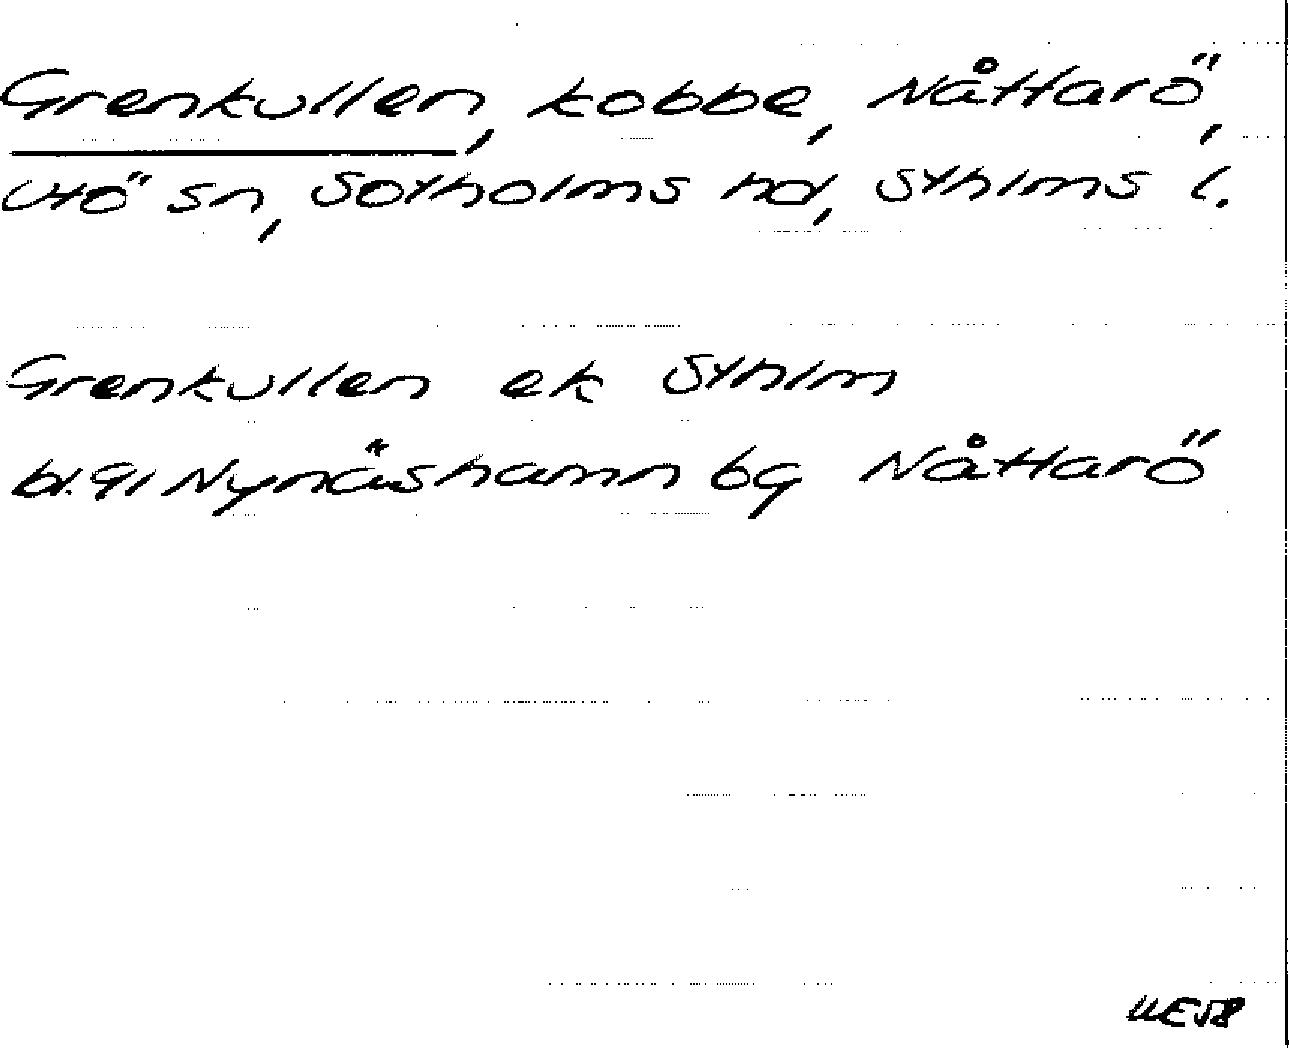 Grenkullen, kobbe, Nåttarö,
Utö sn, Sotholms hd, Sthlms l.
Grenkullen ek Sthlm
bl. 91 Nynäshamn bg Nåttarö